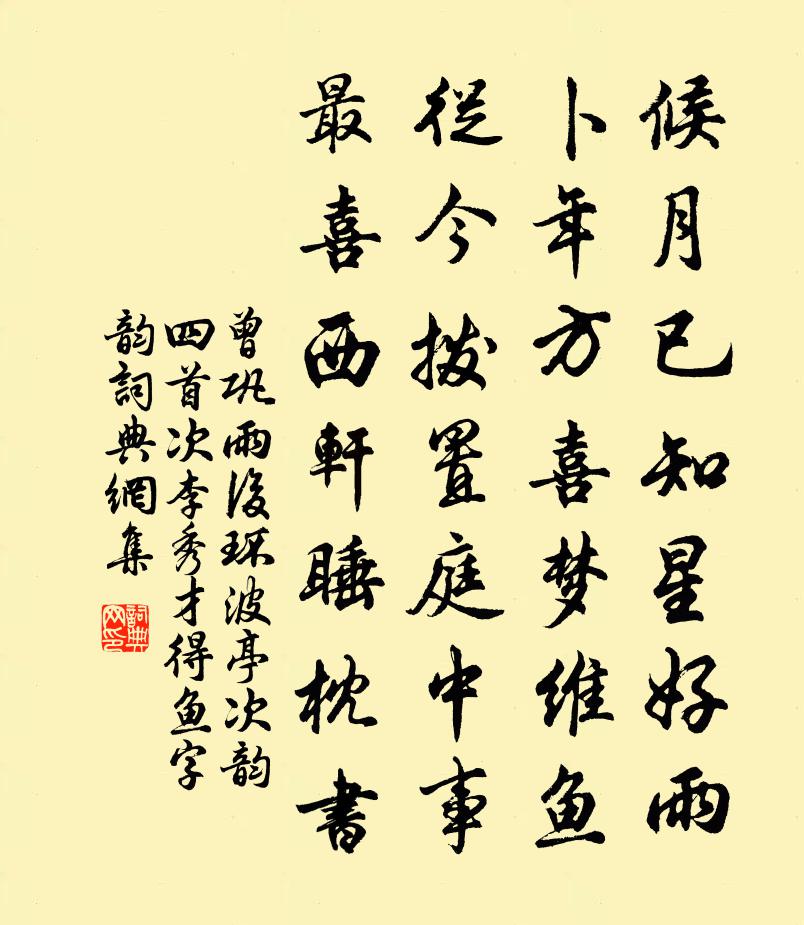 候月已知星好雨
卜年方喜梦维鱼
從今撥置庭中事
最喜西軒睡枕書
曾巩雨後环波亭次韵
四首次李秀才得鱼字
韵詞典網集
詞典
网印